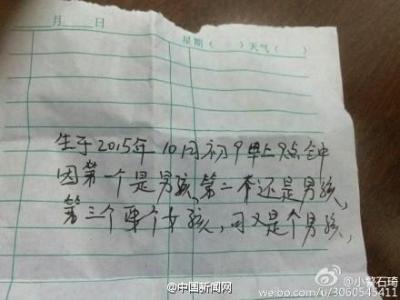 月 日 星期（ ）天气（ ）
生于2015年10月初9早上9点钟
因第一个是男孩,第二个还是男孩,
第三个要个女孩,可又是个男孩,
@中国新闻网
@小警石琦
weibo.com/u/3060545411